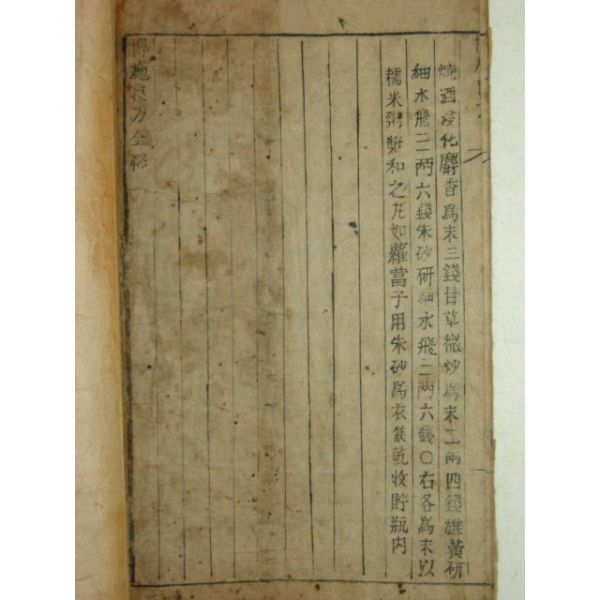 燒酒浸化麝香爲末三錢甘草微炒爲末二兩四錢雄黃研
細水飛二兩六錢朱砂研細水飛二兩六錢○右各爲末以
糯米粥漿和之丸如蘿蔔子用朱砂爲衣候乾收貯瓶內
博施良方全終